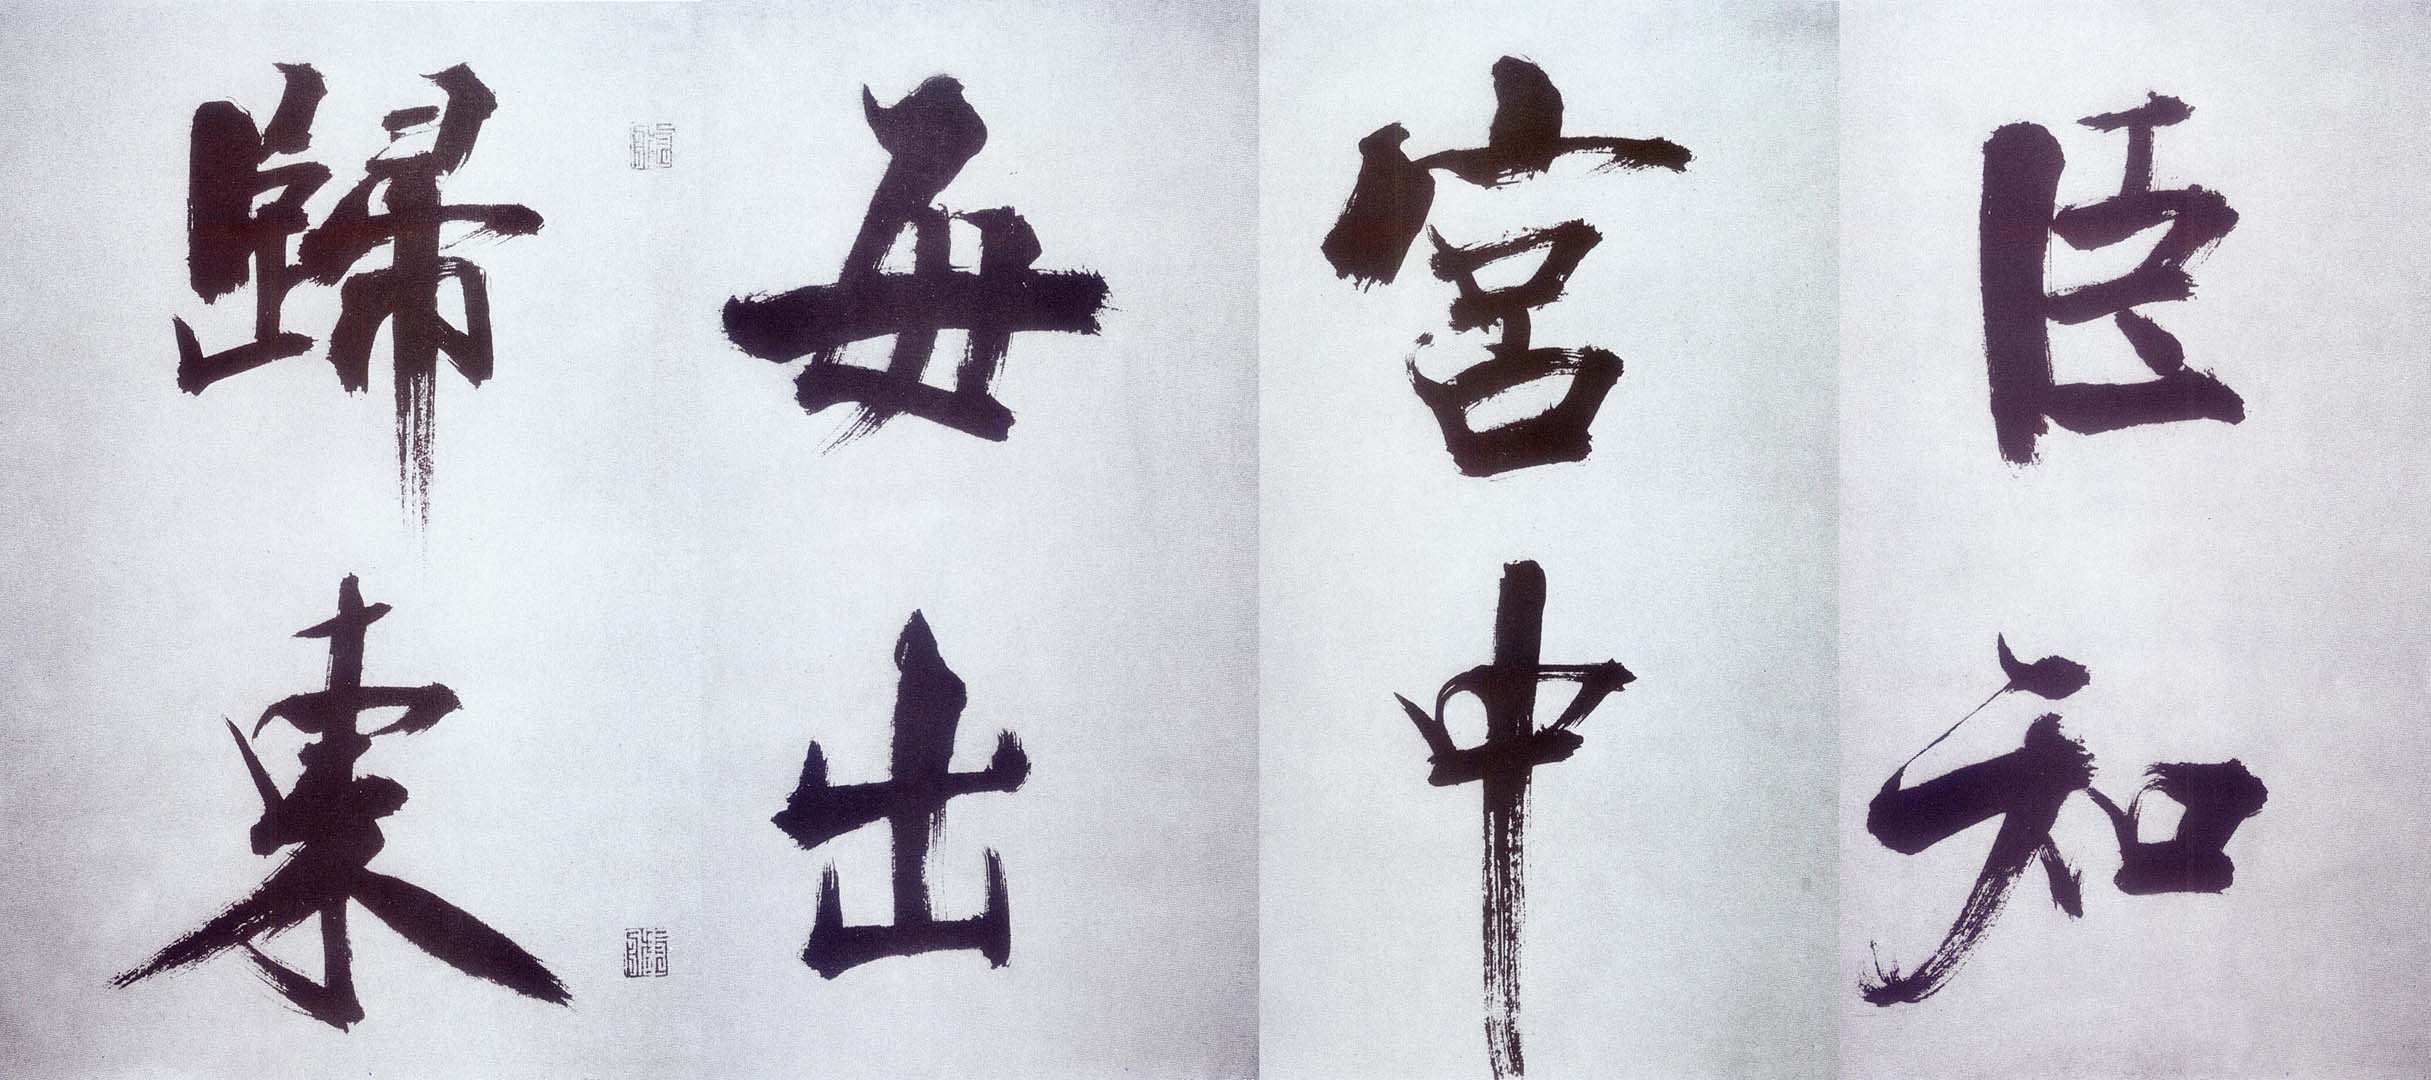 臣知
宮中
每出
歸東